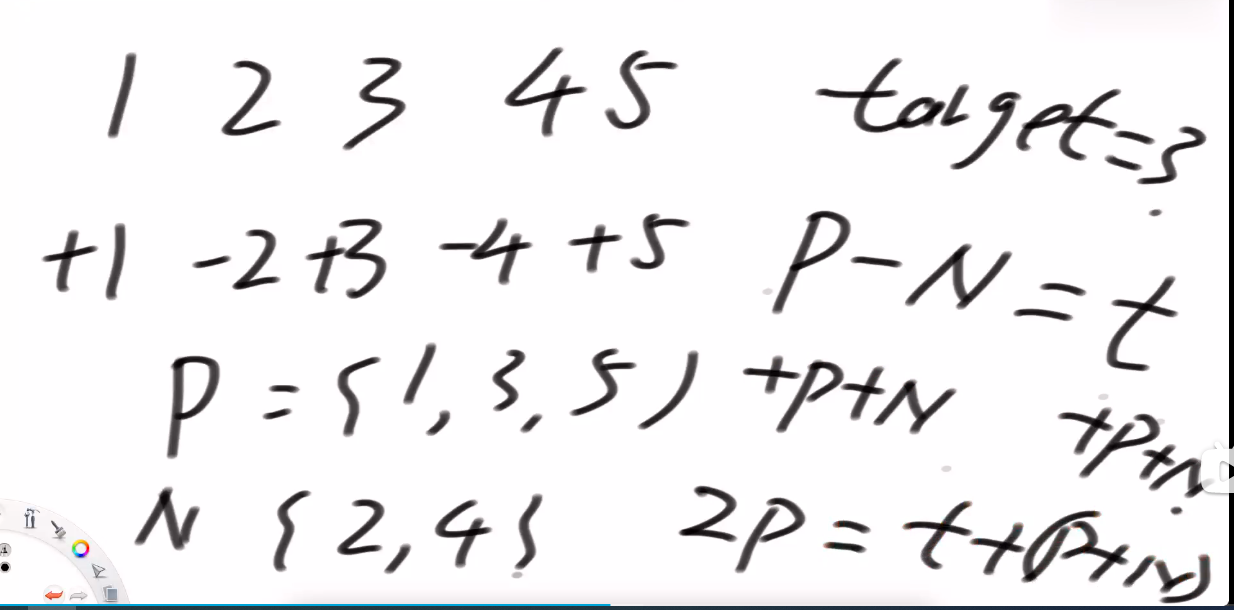 1 2 3 4 5 target=3
+1 -2 +3 -4 +5 P-N=t
P={1,3,5) +P+N +P+N
N {2,4} 2P=t+(P+N)